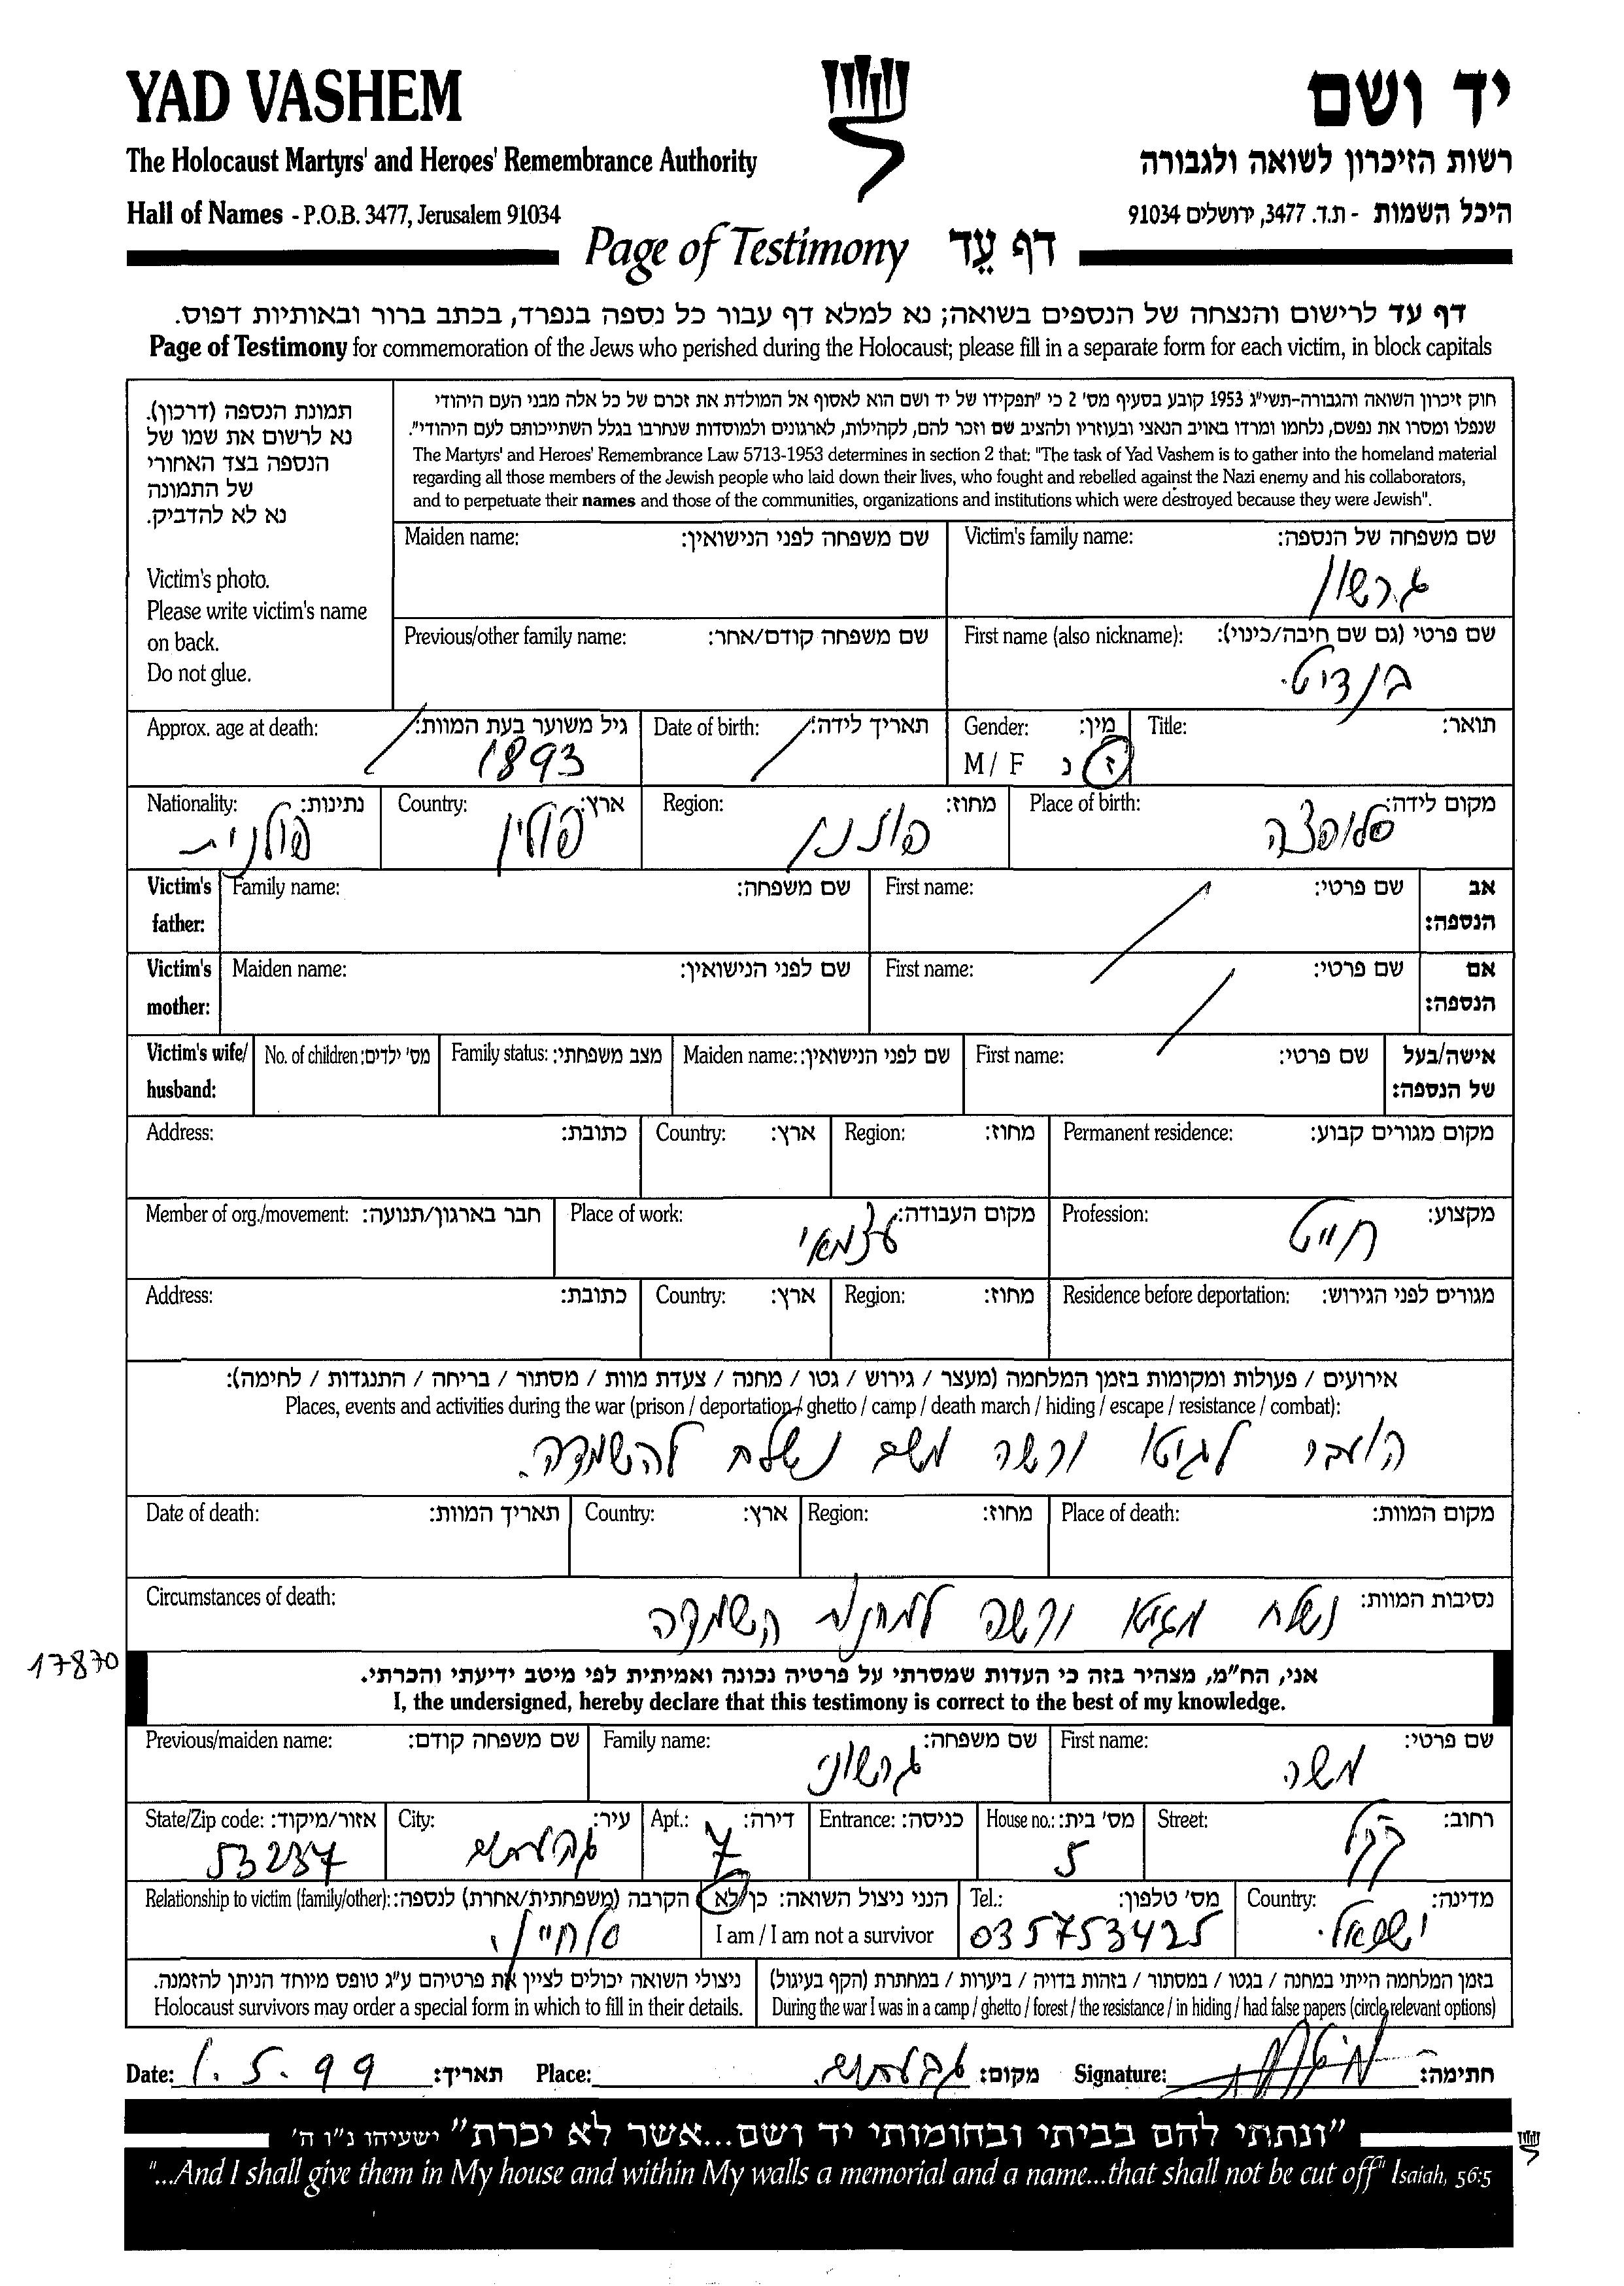 YAD VASHEM
יד ושם
The Holocaust Martyrs' and Heroes' Remembrance Authority
רשות הזיכרון לשואה ולגבורה
Hall of Names - P.O.B. 3477, Jerusalem 91034
היכל השמות - ת.ד. 3477, ירושלים 91034
Page of Testimony דף עֵד
דף עד לרישום והנצחה של הנספים בשואה; נא למלא דף עבור כל נספה בנפרד, בכתב ברור ובאותיות דפוס.
Page of Testimony for commemoration of the Jews who perished during the Holocaust; please fill in a separate form for each victim, in block capitals
תמונת הנספה (דרכון).
נא לרשום את שמו של
הנספה בצד האחורי
של התמונה
נא לא להדביק.
Victim's photo.
Please write victim's name
on back.
Do not glue.
חוק זיכרון השואה והגבורה-תשי"ג 1953 קובע בסעיף מס' 2 כי "תפקידו של יד ושם הוא לאסוף אל המולדת את זכרם של כל אלה מבני העם היהודי
שנפלו ומסרו את נפשם, נלחמו ומרדו באויב הנאצי ובעוזריו ולהציב שם וזכר להם, לקהילות, לארגונים ולמוסדות שנחרבו בגלל השתייכותם לעם היהודי".
The Martyrs' and Heroes' Remembrance Law 5713-1953 determines in section 2 that: "The task of Yad Vashem is to gather into the homeland material
regarding all those members of the Jewish people who laid down their lives, who fought and rebelled against the Nazi enemy and his collaborators,
and to perpetuate their names and those of the communities, organizations and institutions which were destroyed because they were Jewish".
Maiden name: שם משפחה לפני הנישואין: Victim's family name: שם משפחה של הנספה:
גרשון
Previous/other family name: שם משפחה קודם/אחר: First name (also nickname): שם פרטי (גם שם חיבה/כינוי):
בנדיט.
Approx. age at death: גיל משוער בעת המוות: Date of birth: תאריך לידה: Gender: מין: Title: תואר:
1893 M / F ז נ
Nationality: נתינות: Country: ארץ: Region: מחוז: Place of birth: מקום לידה:
פולנית פולין פוזנן סלופצה
Victim's father: Family name: שם משפחה: First name: שם פרטי: אב הנספה:
Victim's mother: Maiden name: שם לפני הנישואין: First name: שם פרטי: אם הנספה:
Victim's wife/ husband: No. of children: מס' ילדים: Family status: מצב משפחתי: Maiden name: שם לפני הנישואין: First name: שם פרטי: אישה/בעל של הנספה:
Address: כתובת: Country: ארץ: Region: מחוז: Permanent residence: מקום מגורים קבוע:
Member of org./movement: חבר בארגון/תנועה: Place of work: מקום העבודה: Profession: מקצוע:
עצמאי חייט
Address: כתובת: Country: ארץ: Region: מחוז: Residence before deportation: מגורים לפני הגירוש:
אירועים / פעולות ומקומות בזמן המלחמה (מעצר / גירוש / גטו / מחנה / צעדת מוות / מסתור / בריחה / התנגדות / לחימה):
Places, events and activities during the war (prison / deportation / ghetto / camp / death march / hiding / escape / resistance / combat):
הועבר לגיטו ורשה משם נשלח להשמדה.
Date of death: תאריך המוות: Country: ארץ: Region: מחוז: Place of death: מקום המוות:
Circumstances of death: נסיבות המוות:
נשלח מגיטו ורשה למחנה השמדה
17870
אני, הח"מ, מצהיר בזה כי העדות שמסרתי על פרטיה נכונה ואמיתית לפי מיטב ידיעתי והכרתי.
I, the undersigned, hereby declare that this testimony is correct to the best of my knowledge.
Previous/maiden name: שם משפחה קודם: Family name: שם משפחה: First name: שם פרטי:
גרשוני משה
State/Zip code: אזור/מיקוד: City: עיר: Apt.: דירה: Entrance: כניסה: House no.: מס' בית: Street: רחוב:
53237 גבעתיים 7 5 קק"ל
Relationship to victim (family/other): הקרבה (משפחתית/אחרת) לנספה: הנני ניצול השואה: כן/לא Tel.: מס' טלפון: Country: מדינה:
I am / I am not a survivor 035753425 ישראל.
ניצולי השואה יכולים לציין את פרטיהם ע"ג טופס מיוחד הניתן להזמנה.
Holocaust survivors may order a special form in which to fill in their details.
בזמן המלחמה הייתי במחנה / בגטו / במסתור / בזהות בדויה / ביערות / במחתרת (הקף בעיגול)
During the war I was in a camp / ghetto / forest / the resistance / in hiding / had false papers (circle relevant options)
Date: 1.5.99 תאריך: Place: גבעתיים. מקום: Signature: חתימה:
"ונתתי להם בביתי ובחומותי יד ושם...אשר לא יכרת" ישעיהו נ"ו ה'
"...And I shall give them in My house and within My walls a memorial and a name...that shall not be cut off" Isaiah, 56:5